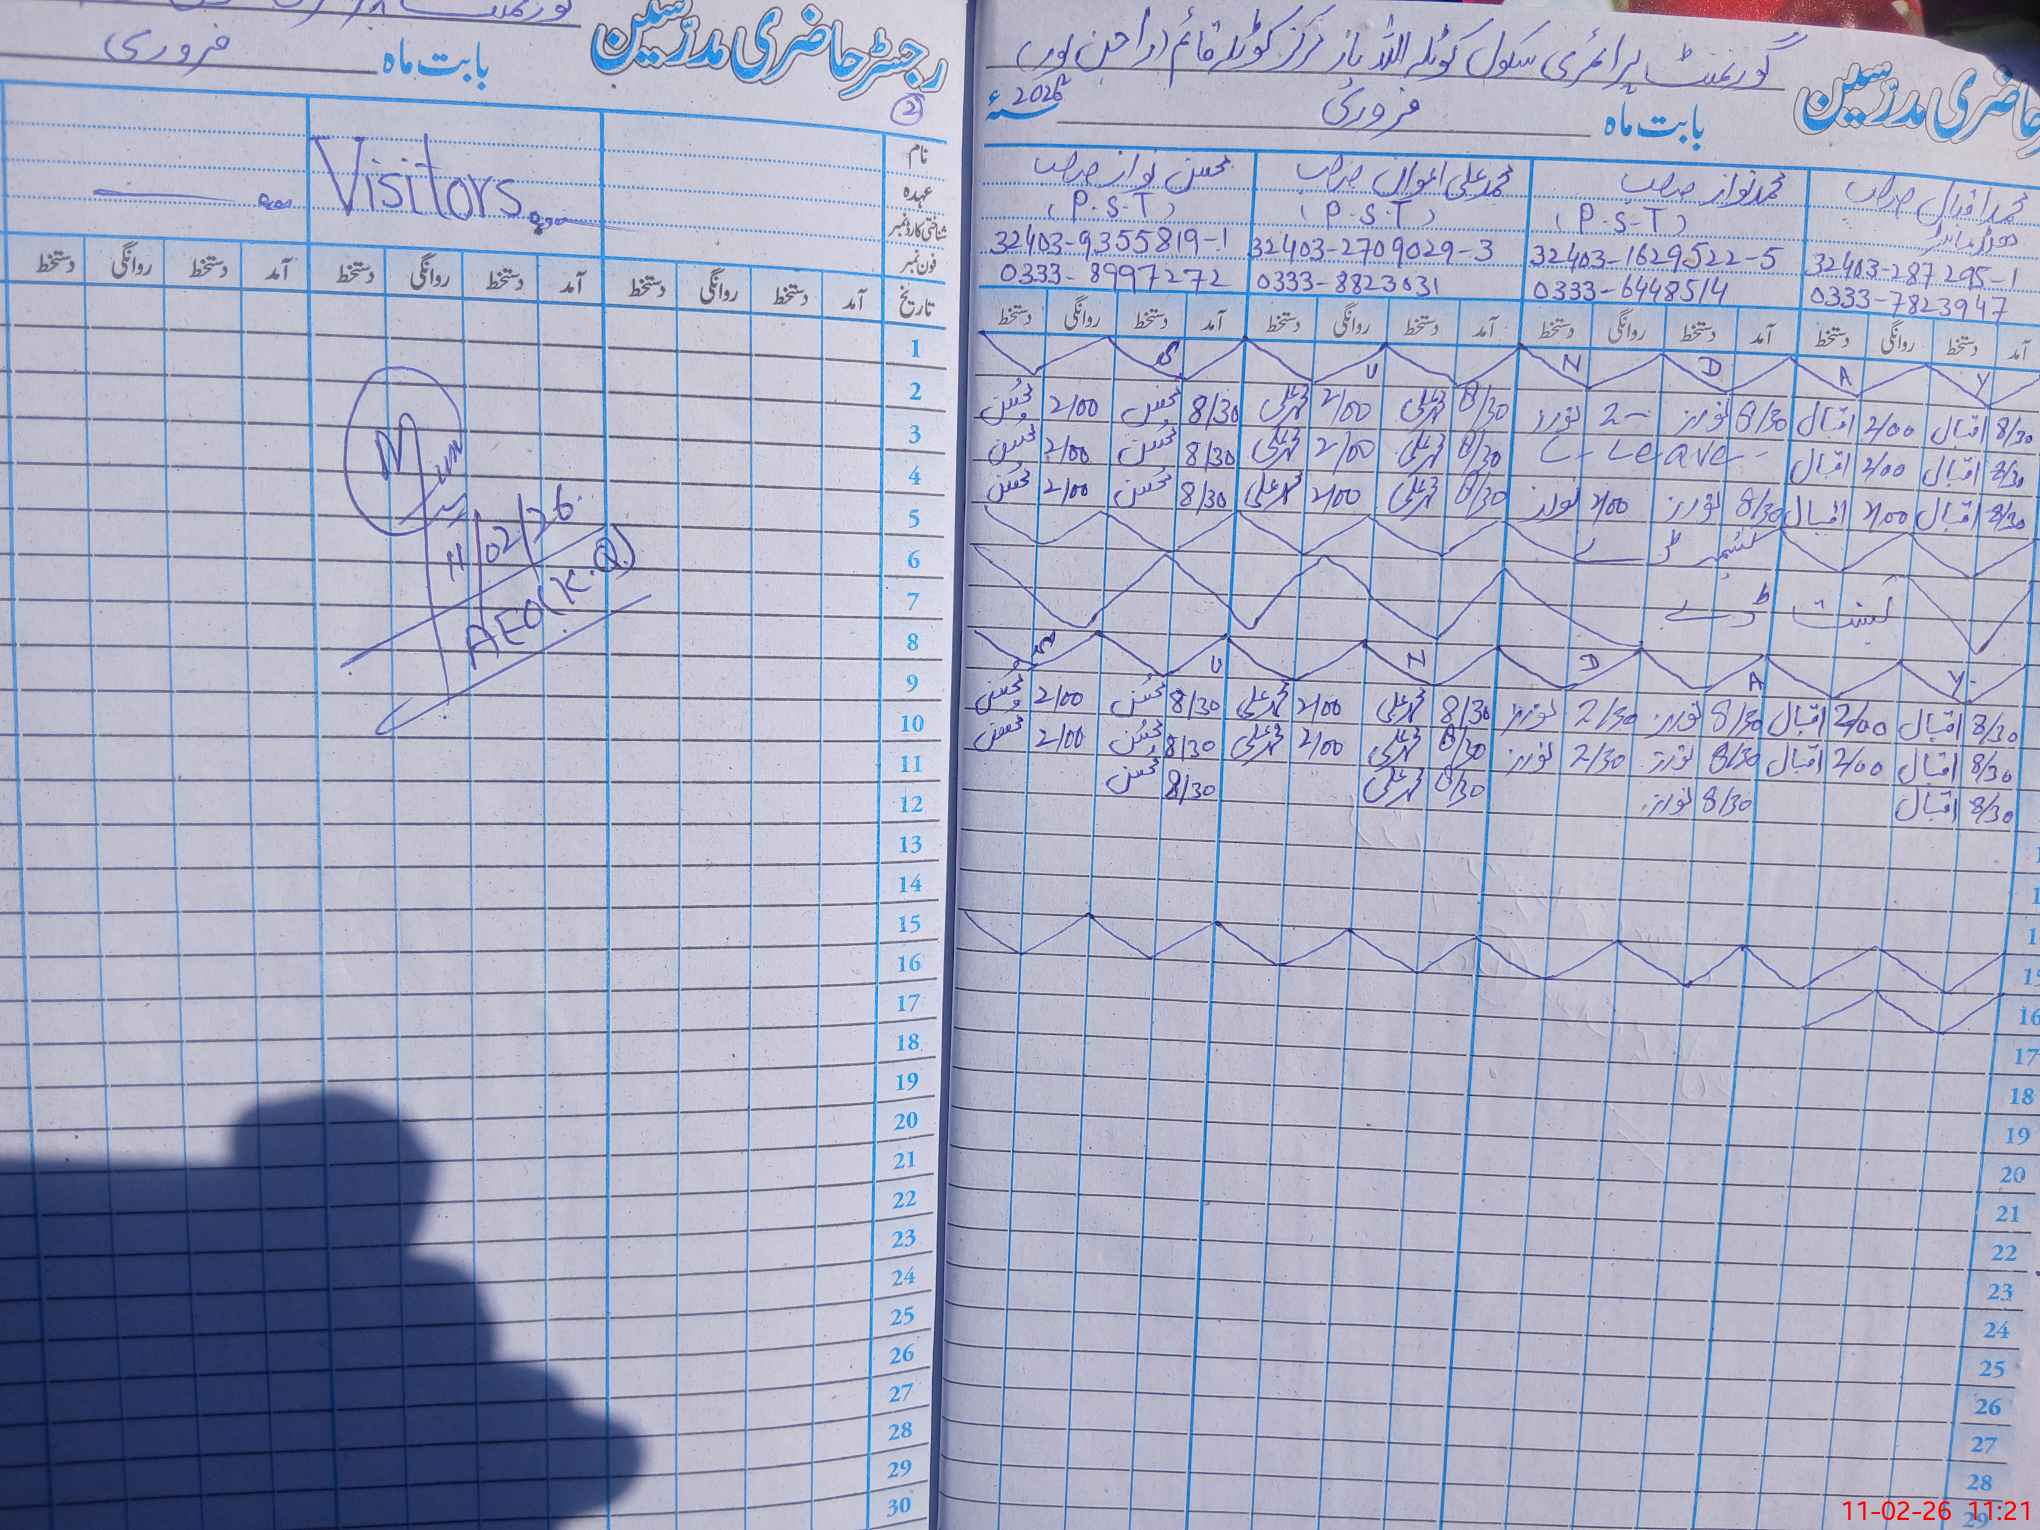 رجسٹر حاضری مدرسین
بابت ماہ فروری
2
Visitors
نام
عہدہ
شناختی کارڈ نمبر
فون نمبر
تاریخ آمد دستخط روانگی دستخط آمد دستخط روانگی دستخط آمد دستخط روانگی دستخط
1
2
3
4
5
6
7
8
9
10
11
12
13
14
15
16
17
18
19
20
21
22
23
24
25
26
27
28
29
30
11/02/26
AEO(K.Q)
گورنمنٹ پرائمری سکول کوٹلہ اللہ باز مرکز کوٹلہ قائم (راجن پور)
حاضری مدرسین
بابت ماہ فروری 2026ء
محمد اقبال صاحب محمد نواز صاحب محمد علی اعوان صاحب محسن نواز صاحب
(P.S.T) (P.S.T) (P.S.T)
32403-287295-1 32403-1629522-5 32403-2709029-3 32403-9355819-1
0333-7823947 0333-6448514 0333-8823031 0333-8997272
آمد دستخط روانگی دستخط آمد دستخط روانگی دستخط آمد دستخط روانگی دستخط آمد دستخط روانگی دستخط
S U N D A Y
8/30 اقبال 2/00 اقبال 8/30 نواز 2- نواز 8/30 محمد علی 2/00 محمد علی 8/30 محسن 2/00 محسن
8/30 اقبال 2/00 اقبال C-Leave- 8/30 محمد علی 2/00 محمد علی 8/30 محسن 2/00 محسن
8/30 اقبال 2/00 اقبال 8/30 نواز 2/00 نواز 8/30 محمد علی 2/00 محمد علی 8/30 محسن 2/00 محسن
کشمیر ڈے
بسنت ڈے
S U N D A Y
8/30 اقبال 2/00 اقبال 8/30 نواز 2/30 نواز 8/30 محمد علی 2/00 محمد علی 8/30 محسن 2/00 محسن
8/30 اقبال 2/00 اقبال 8/30 نواز 2/30 نواز 8/30 محمد علی 2/00 محمد علی 8/30 محسن 2/00 محسن
8/30 اقبال 8/30 نواز 8/30 محمد علی 8/30 محسن
15
16
17
18
19
20
21
22
23
24
25
26
27
28
29
11-02-26 11:21